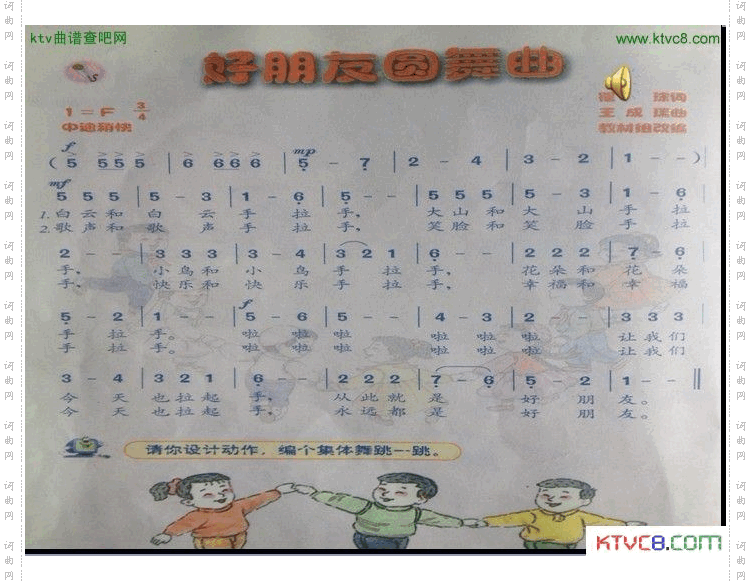 ktv曲谱查吧网
www.ktvc8.com
好朋友圆舞曲
1=F 3/4
中速稍快
珠词
王成 瑞曲
教材组改编
f
mp
( 5 5 5 5 5 | 6 6 6 6 6 | 5 - 7 | 2 - 4 | 3 - 2 | 1 - - )
mf
5 5 5 | 5 - 3 | 1 - 6 | 5 - - | 5 5 5 | 5 - 3 | 1 - 6
1. 白云和 白 云 手 拉 手, 大山和 大 山 手 拉
2. 歌声和 歌 声 手 拉 手, 笑脸和 笑 脸 手 拉
2 - - | 3 3 3 | 3 - 4 | 3 2 1 | 6 - - | 2 2 2 | 7 - 6
手, 小鸟和 小 鸟 手 拉 手, 花朵和 花 朵
手, 快乐和 快 乐 手 拉 手, 幸福和 幸 福
f
5 - 2 | 1 - - | 5 - 6 | 5 - - | 4 - 3 | 2 - - | 3 3 3
手 拉 手。 啦 啦 啦 啦 啦 啦 让我们
手 拉 手。 啦 啦 啦 啦 啦 啦 让我们
3 - 4 | 3 2 1 | 6 - - | 2 2 2 | 7 - 6 | 5 - 2 | 1 - - ‖
今 天 也拉起 手, 从此就 是 好 朋 友。
今 天 也拉起 手, 永远都 是 好 朋 友。
请你设计动作，编个集体舞跳一跳。
KTVC8.com